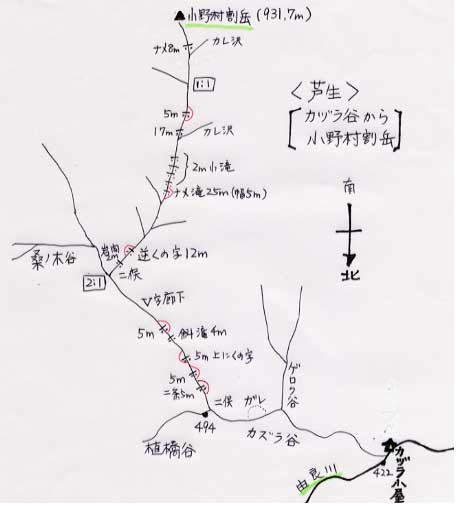 小野村割岳(931.7m)
ナメ8m
カレ沢
1:1
5m
17m
カレ沢
2m小滝
ナメ滝25m(幅5m)
<芦生>
カヅラ谷から
小野村割岳
南
北
逆くの字12m
桑ノ木谷
2:1
二俣
V字廊下
5m
斜滝4m
5m上にくの字
5m
二条5m
二俣
ガレ
ゲロク谷
494
植橋谷
カズラ谷
422
カヅラ小屋
由良川